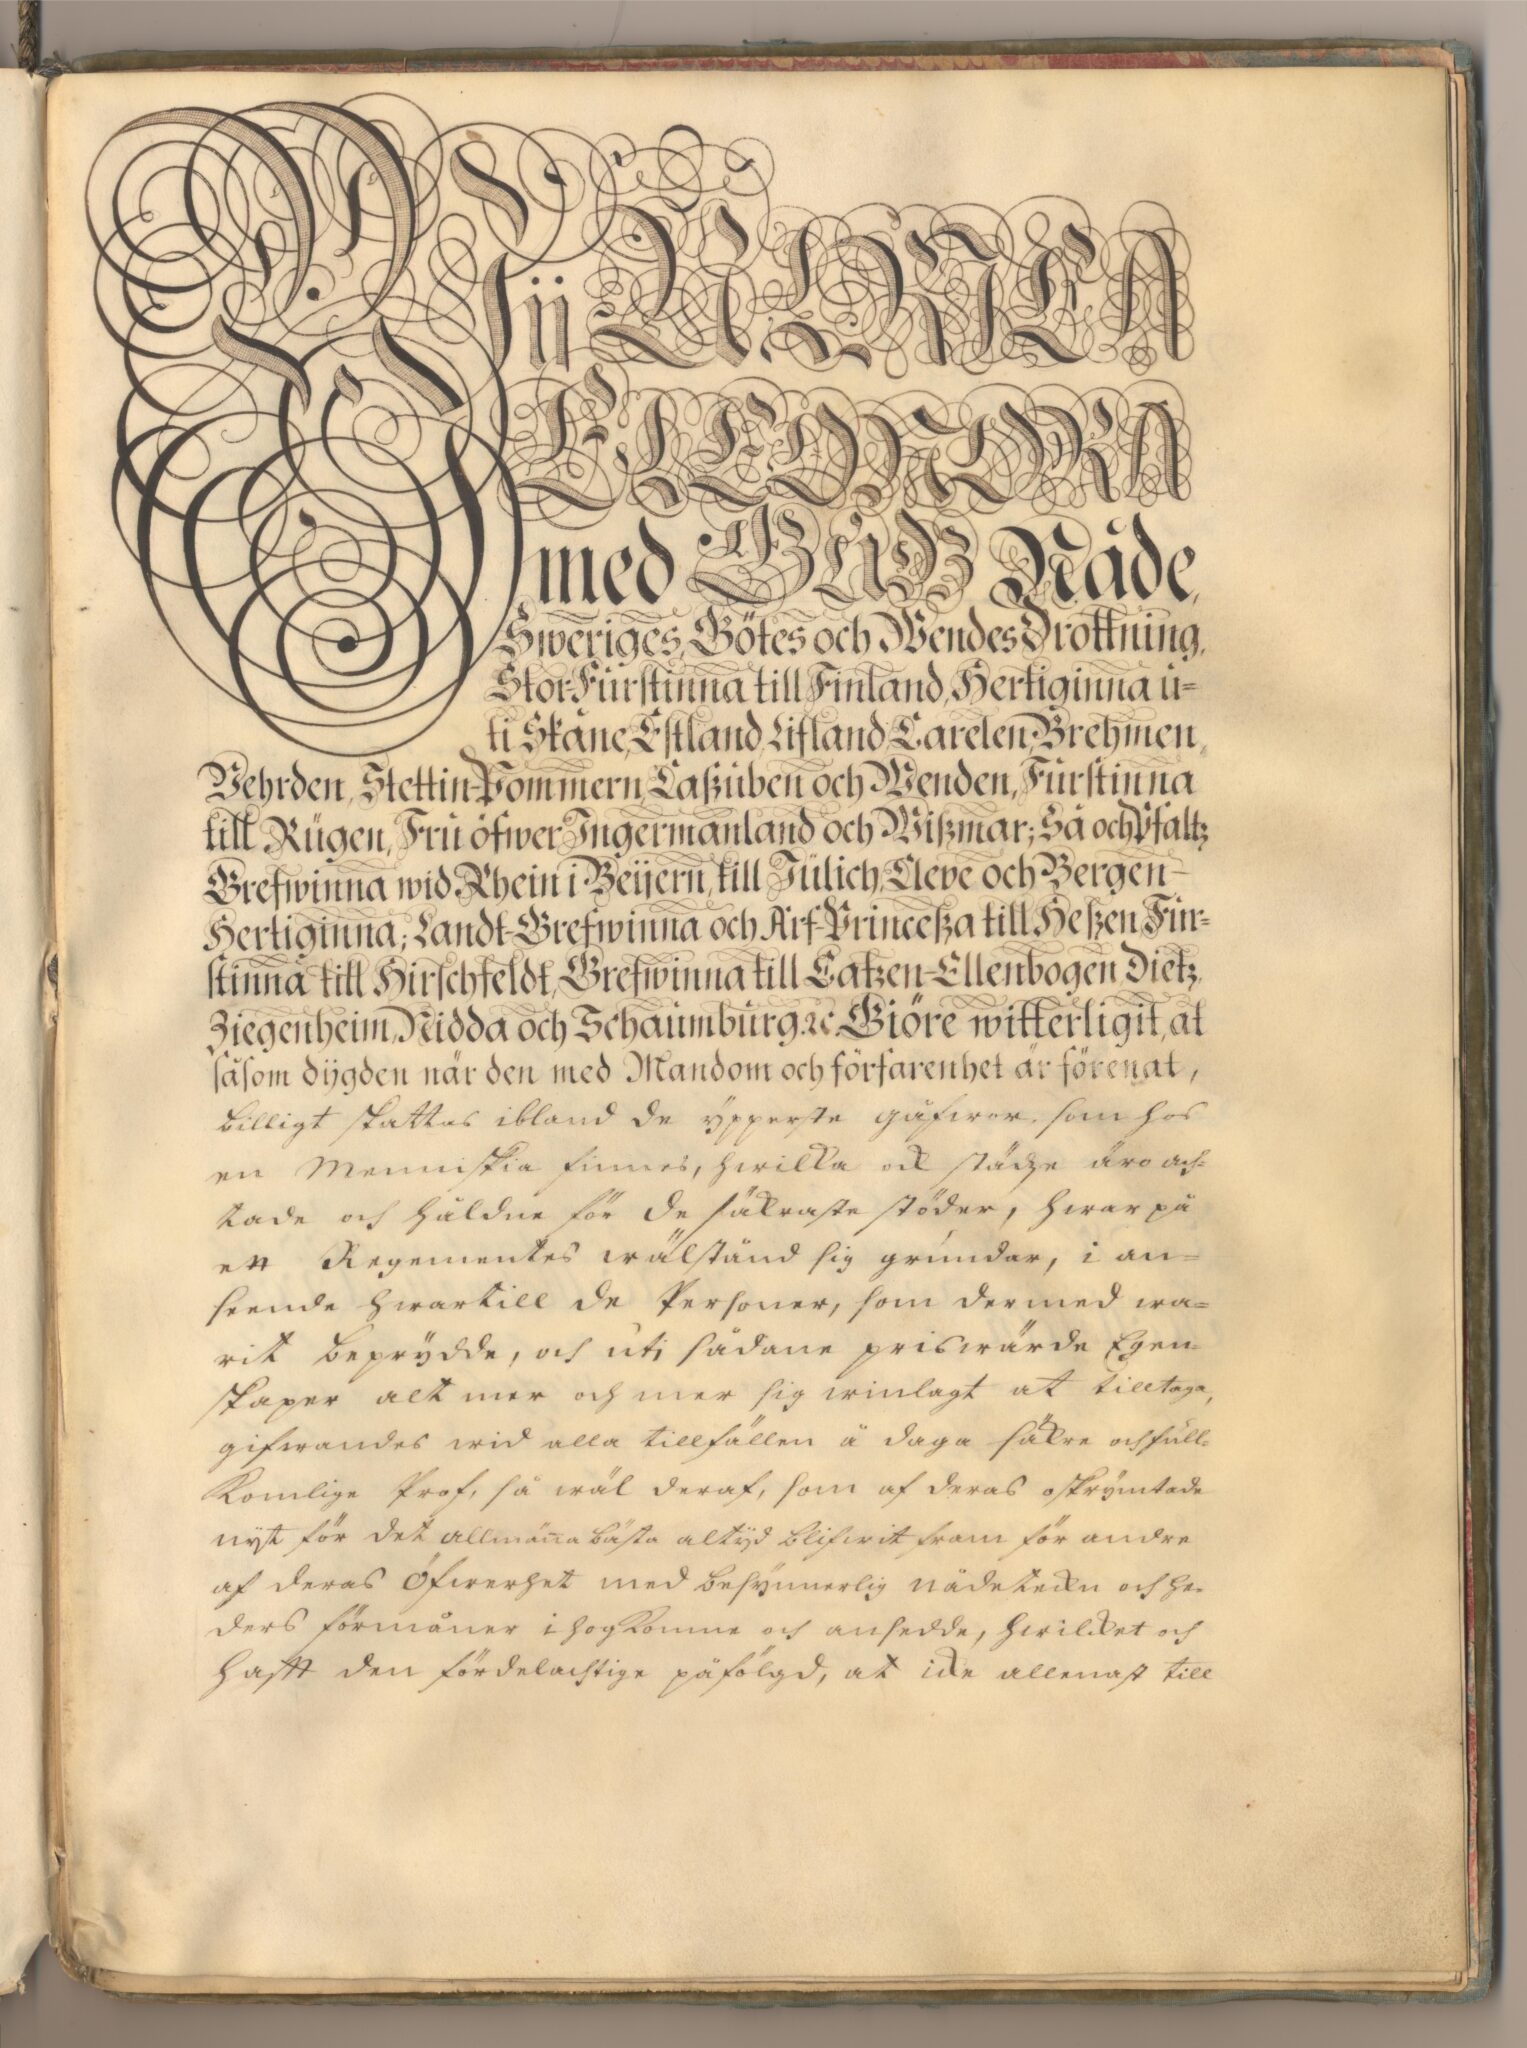 Wij ULRICA
ELEONORA
med GUDZ Nåde,
Sweriges, Götes och Wendes Drottning,
Stor-Fürstinna till Finland, Hertiginna ü-
ti Skåne, Estland, Lifland, Carelen, Brehmen,
Vehrden, Stettin-Pommern, Caßüben och Wenden, Fürstinna
till Rügen, Frü öfwer Ingermanland och Wißmar; Så och Pfaltz
Grefwinna wid Rhein i Beijern, till Jülich, Cleve och Bergen
Hertiginna; Landt-Grefwinna och Arf-Princeßa till Heßen, Für-
stinna till Hirschfeldt, Grefwinna till Catzen-Ellenbogen, Dietz,
Ziegenheim, Nidda och Schaumbürg. ꝛc. Giöre witterligit, at
såsom dÿgden när den med Mandom och förfarenhet är förenat,
billigt skattas ibland de ÿpperste gåfwor, som hos
en Menniskia finnes, hwilka ock städze äro ach-
tade och håldne för de säkraste stöder, hwar på
ett Regementes wälstånd sig grundar, i an-
seende hwartill de Personer, som dermed wa-
rit beprÿdde, och uti sådane priswärde Egen-
skaper alt mer och mer sig winlagt at tilltaga,
gifwandes wid alla tillfällen å daga säkre och full-
komlige Prof, så wäl deraf, som af deras oskrÿmtade
nijt för det allmänna bästa altijd blifwit fram för andre
af deras Öfwerhet med besÿnnerlig nådetekn och he-
ders förmåner ihogkomne och ansedde, hwilket och
hafft den fördelachtige påfölgd, at icke allenast till